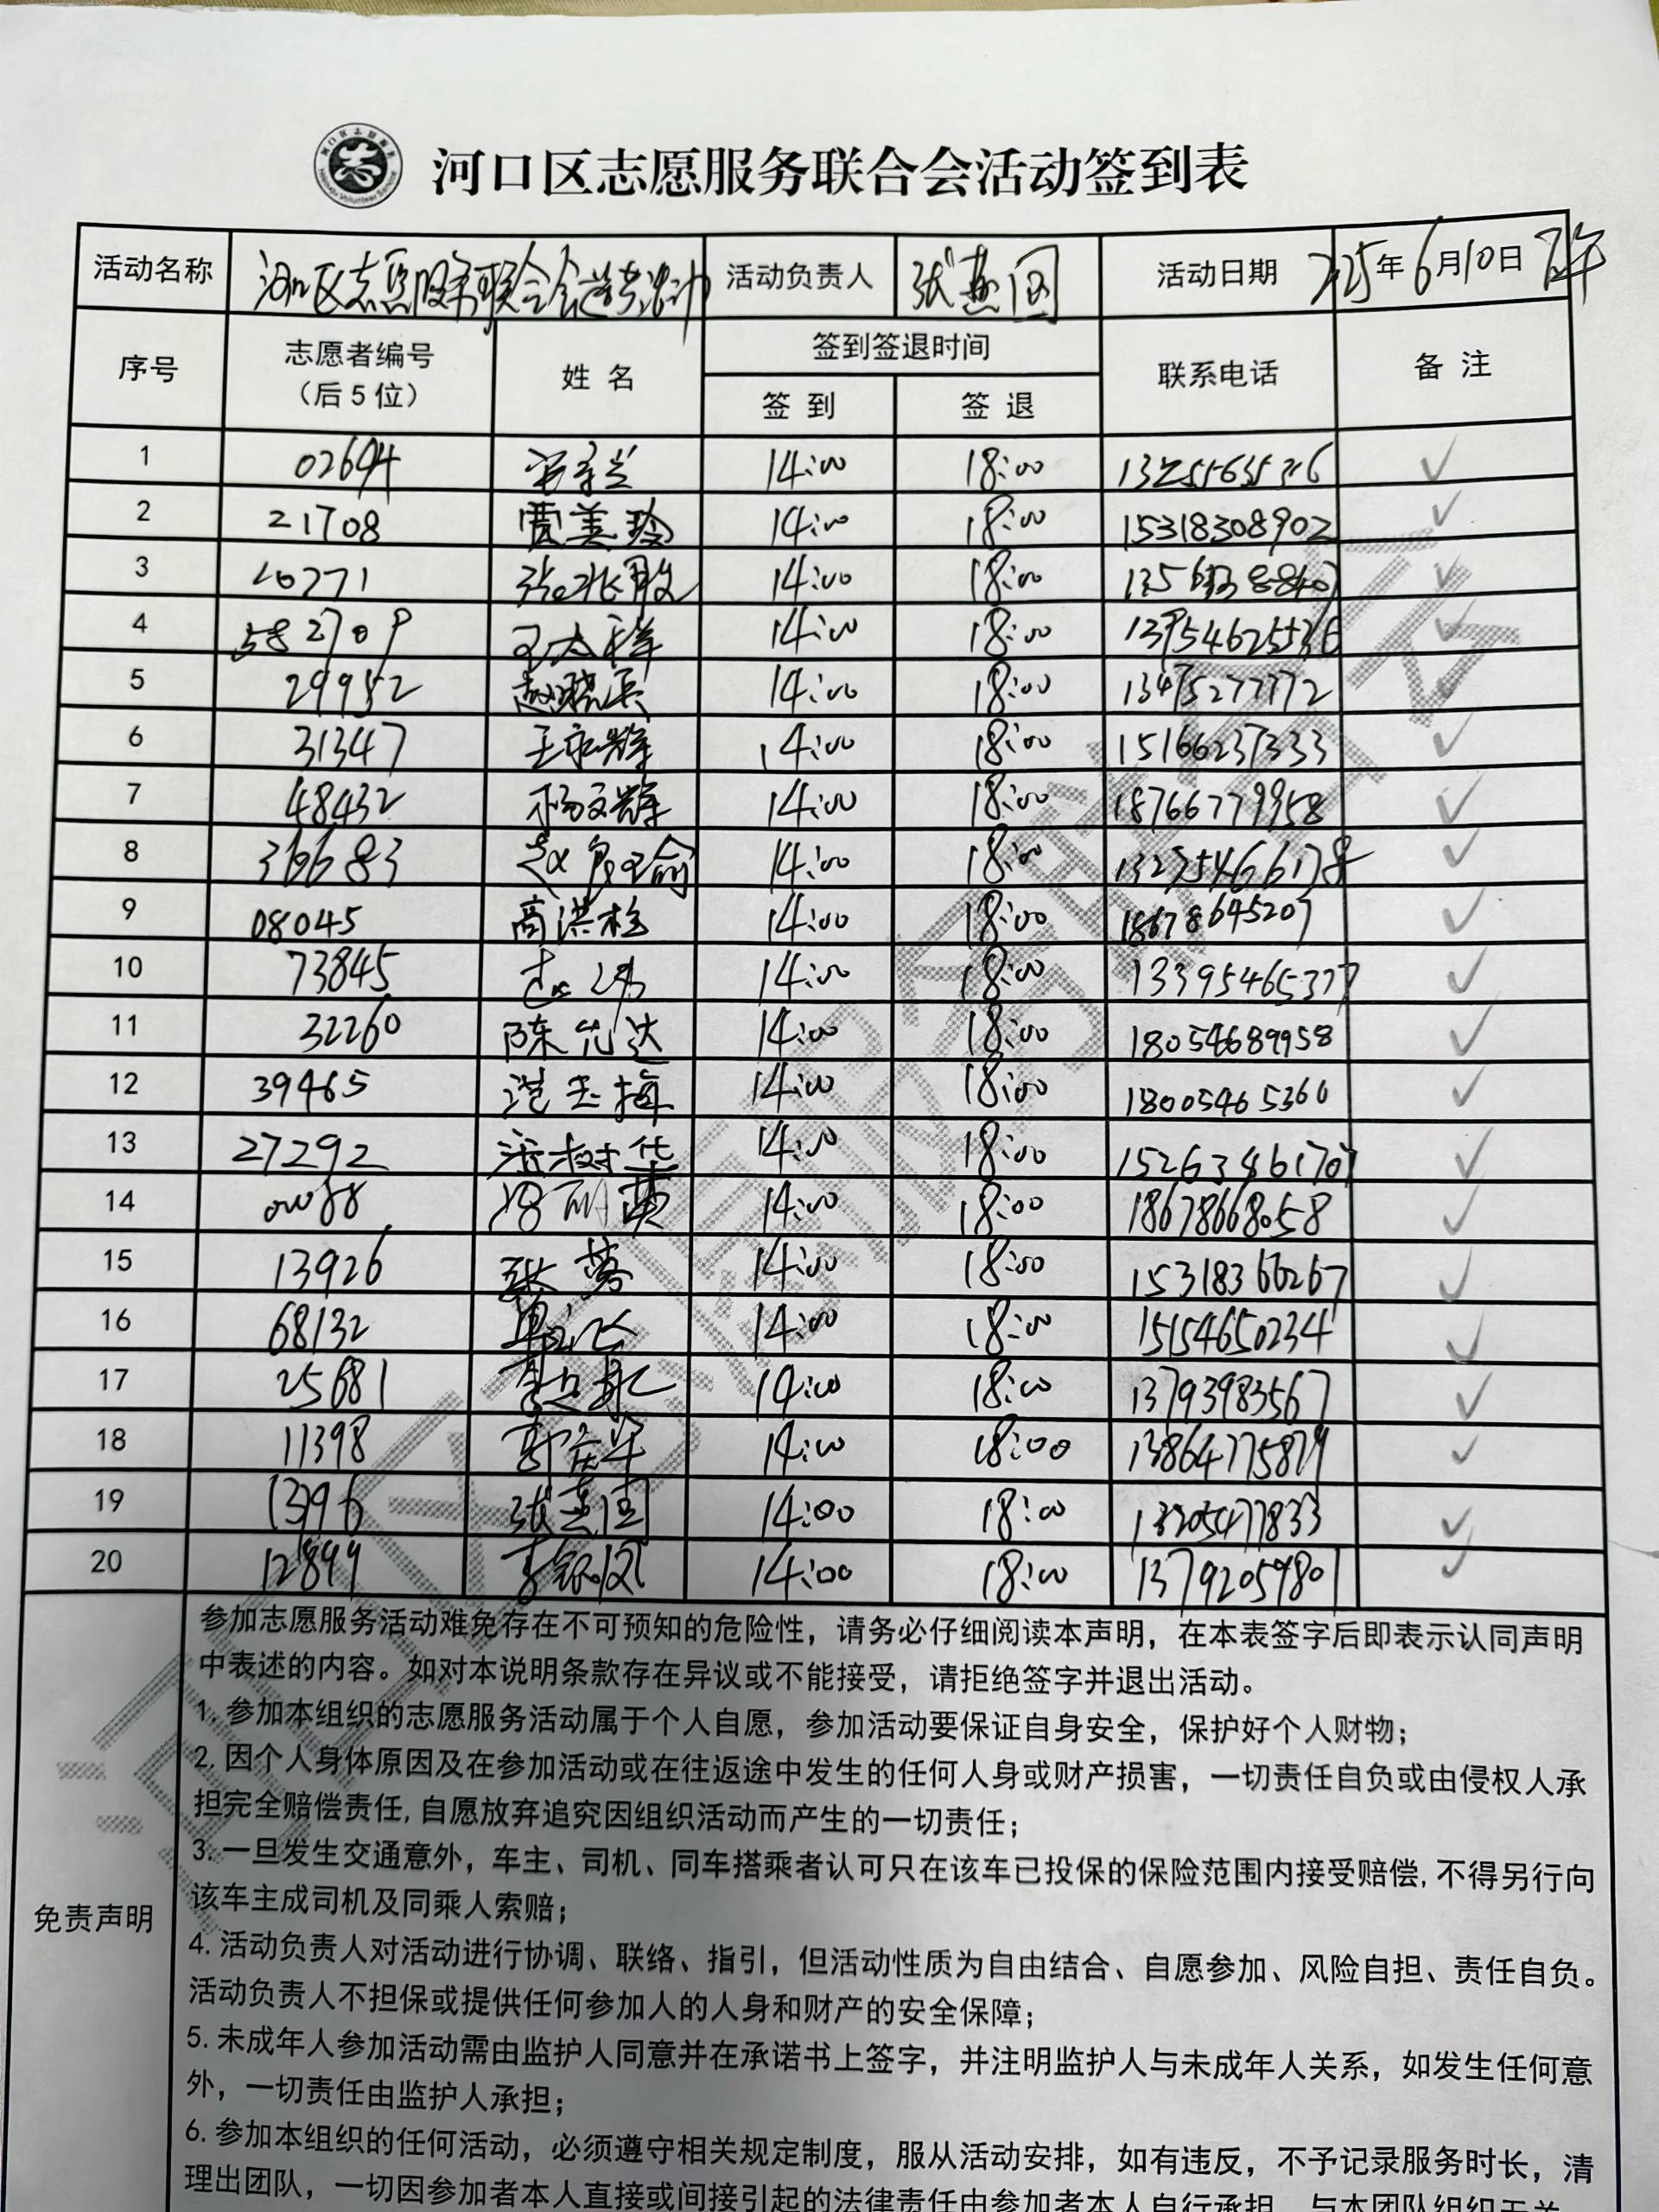 河口区志愿服务联合会活动签到表
活动名称 河口区志愿服务联合会 活动 活动负责人 张燕 活动日期 2025年6月10日 下午
序号 志愿者编号（后5位） 姓名 签到签退时间 联系电话 备注
签到 签退
1 02694 14:00 18:00 ✓
2 21708 贾美玲 14:00 18:00 15318308902 ✓
3 14:00 18:00 ✓
4 14:00 18:00 13954625536 ✓
5 29952 赵晓兵 14:00 18:00 13475277772 ✓
6 31347 王永辉 14:00 18:00 15166237333 ✓
7 48432 杨文辉 14:00 18:00 18766779958 ✓
8 36683 14:00 18:00 ✓
9 08045 商洪 14:00 18:00 18678645207 ✓
10 73845 14:00 18:00 13395465377 ✓
11 32260 陈光达 14:00 18:00 18054689958 ✓
12 39465 14:00 18:00 18005465360 ✓
13 27292 树华 14:00 18:00 ✓
14 14:00 18:00 18678668058 ✓
15 13926 张 14:00 18:00 15318366267 ✓
16 68132 14:00 18:00 15154650234 ✓
17 25681 14:00 18:00 13793983567 ✓
18 11398 14:00 18:00 ✓
19 13996 张燕 14:00 18:00 ✓
20 12899 14:00 18:00 13792059801 ✓
免责声明
参加志愿服务活动难免存在不可预知的危险性，请务必仔细阅读本声明，在本表签字后即表示认同声明
中表述的内容。如对本说明条款存在异议或不能接受，请拒绝签字并退出活动。
1.参加本组织的志愿服务活动属于个人自愿，参加活动要保证自身安全，保护好个人财物；
2.因个人身体原因及在参加活动或在往返途中发生的任何人身或财产损害，一切责任自负或由侵权人承
担完全赔偿责任,自愿放弃追究因组织活动而产生的一切责任；
3.一旦发生交通意外，车主、司机、同车搭乘者认可只在该车已投保的保险范围内接受赔偿,不得另行向
该车主成司机及同乘人索赔；
4.活动负责人对活动进行协调、联络、指引，但活动性质为自由结合、自愿参加、风险自担、责任自负。
活动负责人不担保或提供任何参加人的人身和财产的安全保障；
5.未成年人参加活动需由监护人同意并在承诺书上签字，并注明监护人与未成年人关系，如发生任何意
外，一切责任由监护人承担；
6.参加本组织的任何活动，必须遵守相关规定制度，服从活动安排，如有违反，不予记录服务时长，清
理出团队，一切因参加者本人直接或间接引起的法律责任由参加者本人自行承担，与本团队组织无关